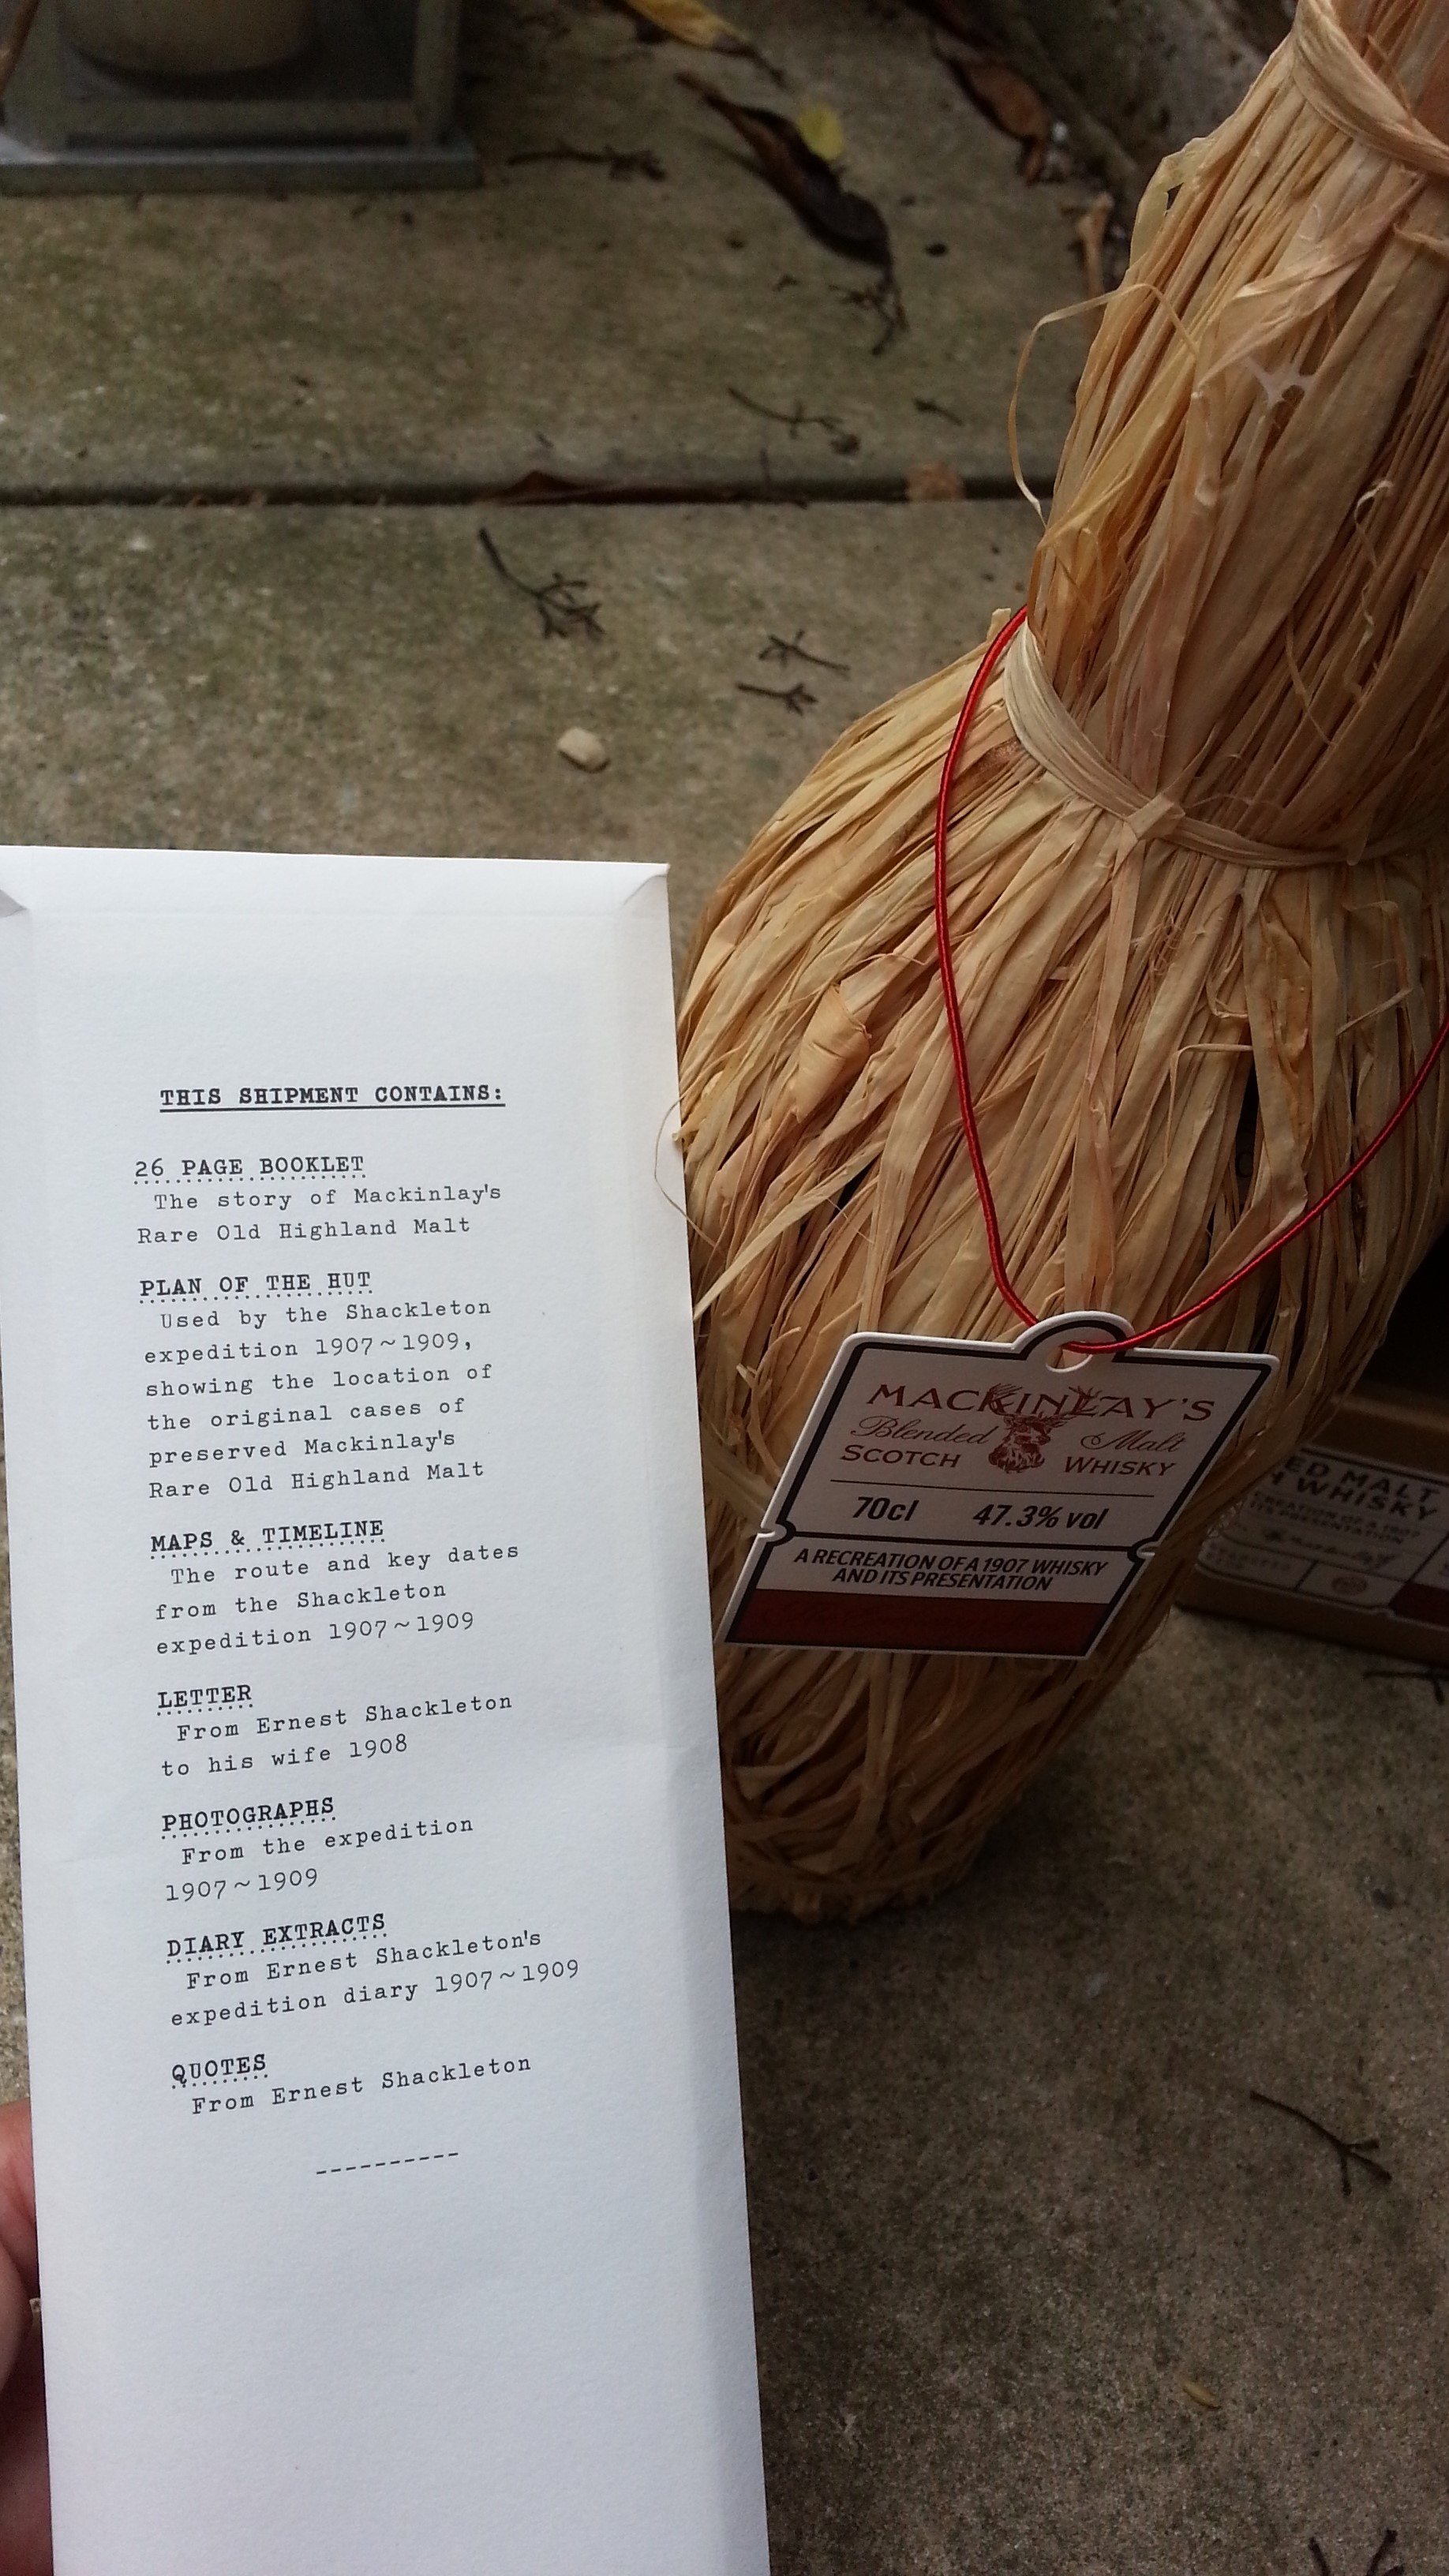 THIS SHIPMENT CONTAINS:
26 PAGE BOOKLET
The story of Mackinlay's
Rare Old Highland Malt
PLAN OF THE HUT
Used by the Shackleton
expedition 1907~1909,
showing the location of
the original cases of
preserved Mackinlay's
Rare Old Highland Malt
MAPS & TIMELINE
The route and key dates
from the Shackleton
expedition 1907~1909
LETTER
From Ernest Shackleton
to his wife 1908
PHOTOGRAPHS
From the expedition
1907~1909
DIARY EXTRACTS
From Ernest Shackleton's
expedition diary 1907~1909
QUOTES
From Ernest Shackleton
----------
MACKINLAY'S
Blended Malt
SCOTCH WHISKY
70cl 47.3% vol
A RECREATION OF A 1907 WHISKY
AND ITS PRESENTATION
ED MALT
H WHISKY
OF A 1907
ITS PRESENTATION